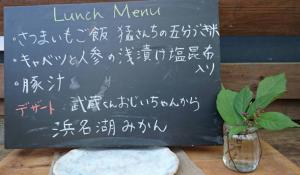 Lunch Menu
・さつまいもご飯 猛さんちの五分づき米
・キャベツと人参の浅漬け塩昆布
入り
・豚汁
デザート 武蔵くんおじいちゃんから
浜名湖みかん